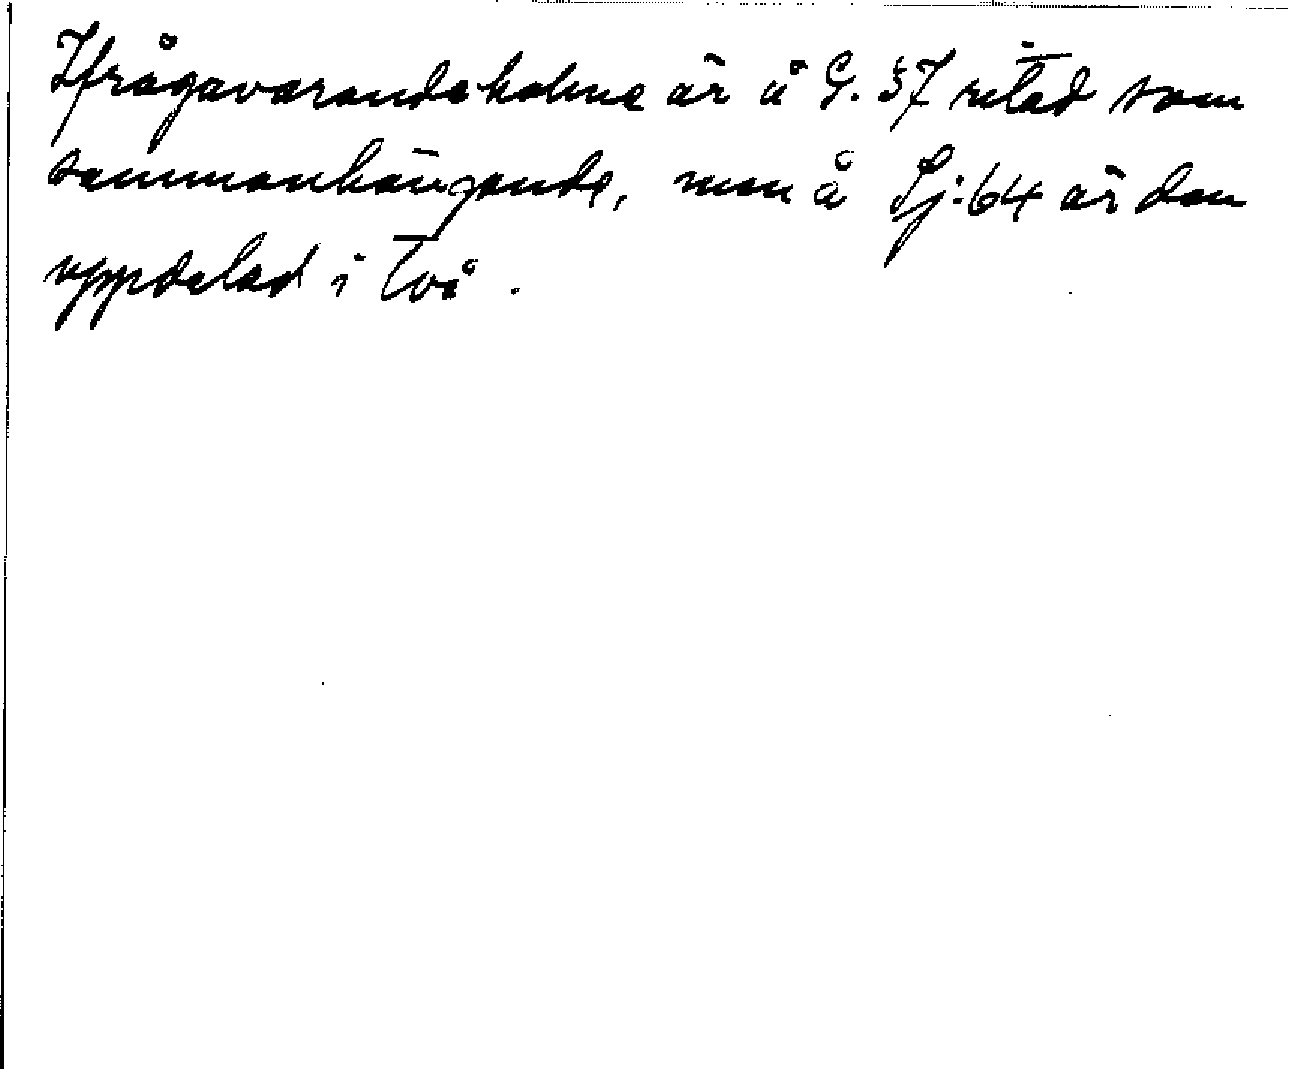 Ifrågavarande holme är å G. 57 ritad som
sammanhängande, men å Sj:64 är den
uppdelad i två.